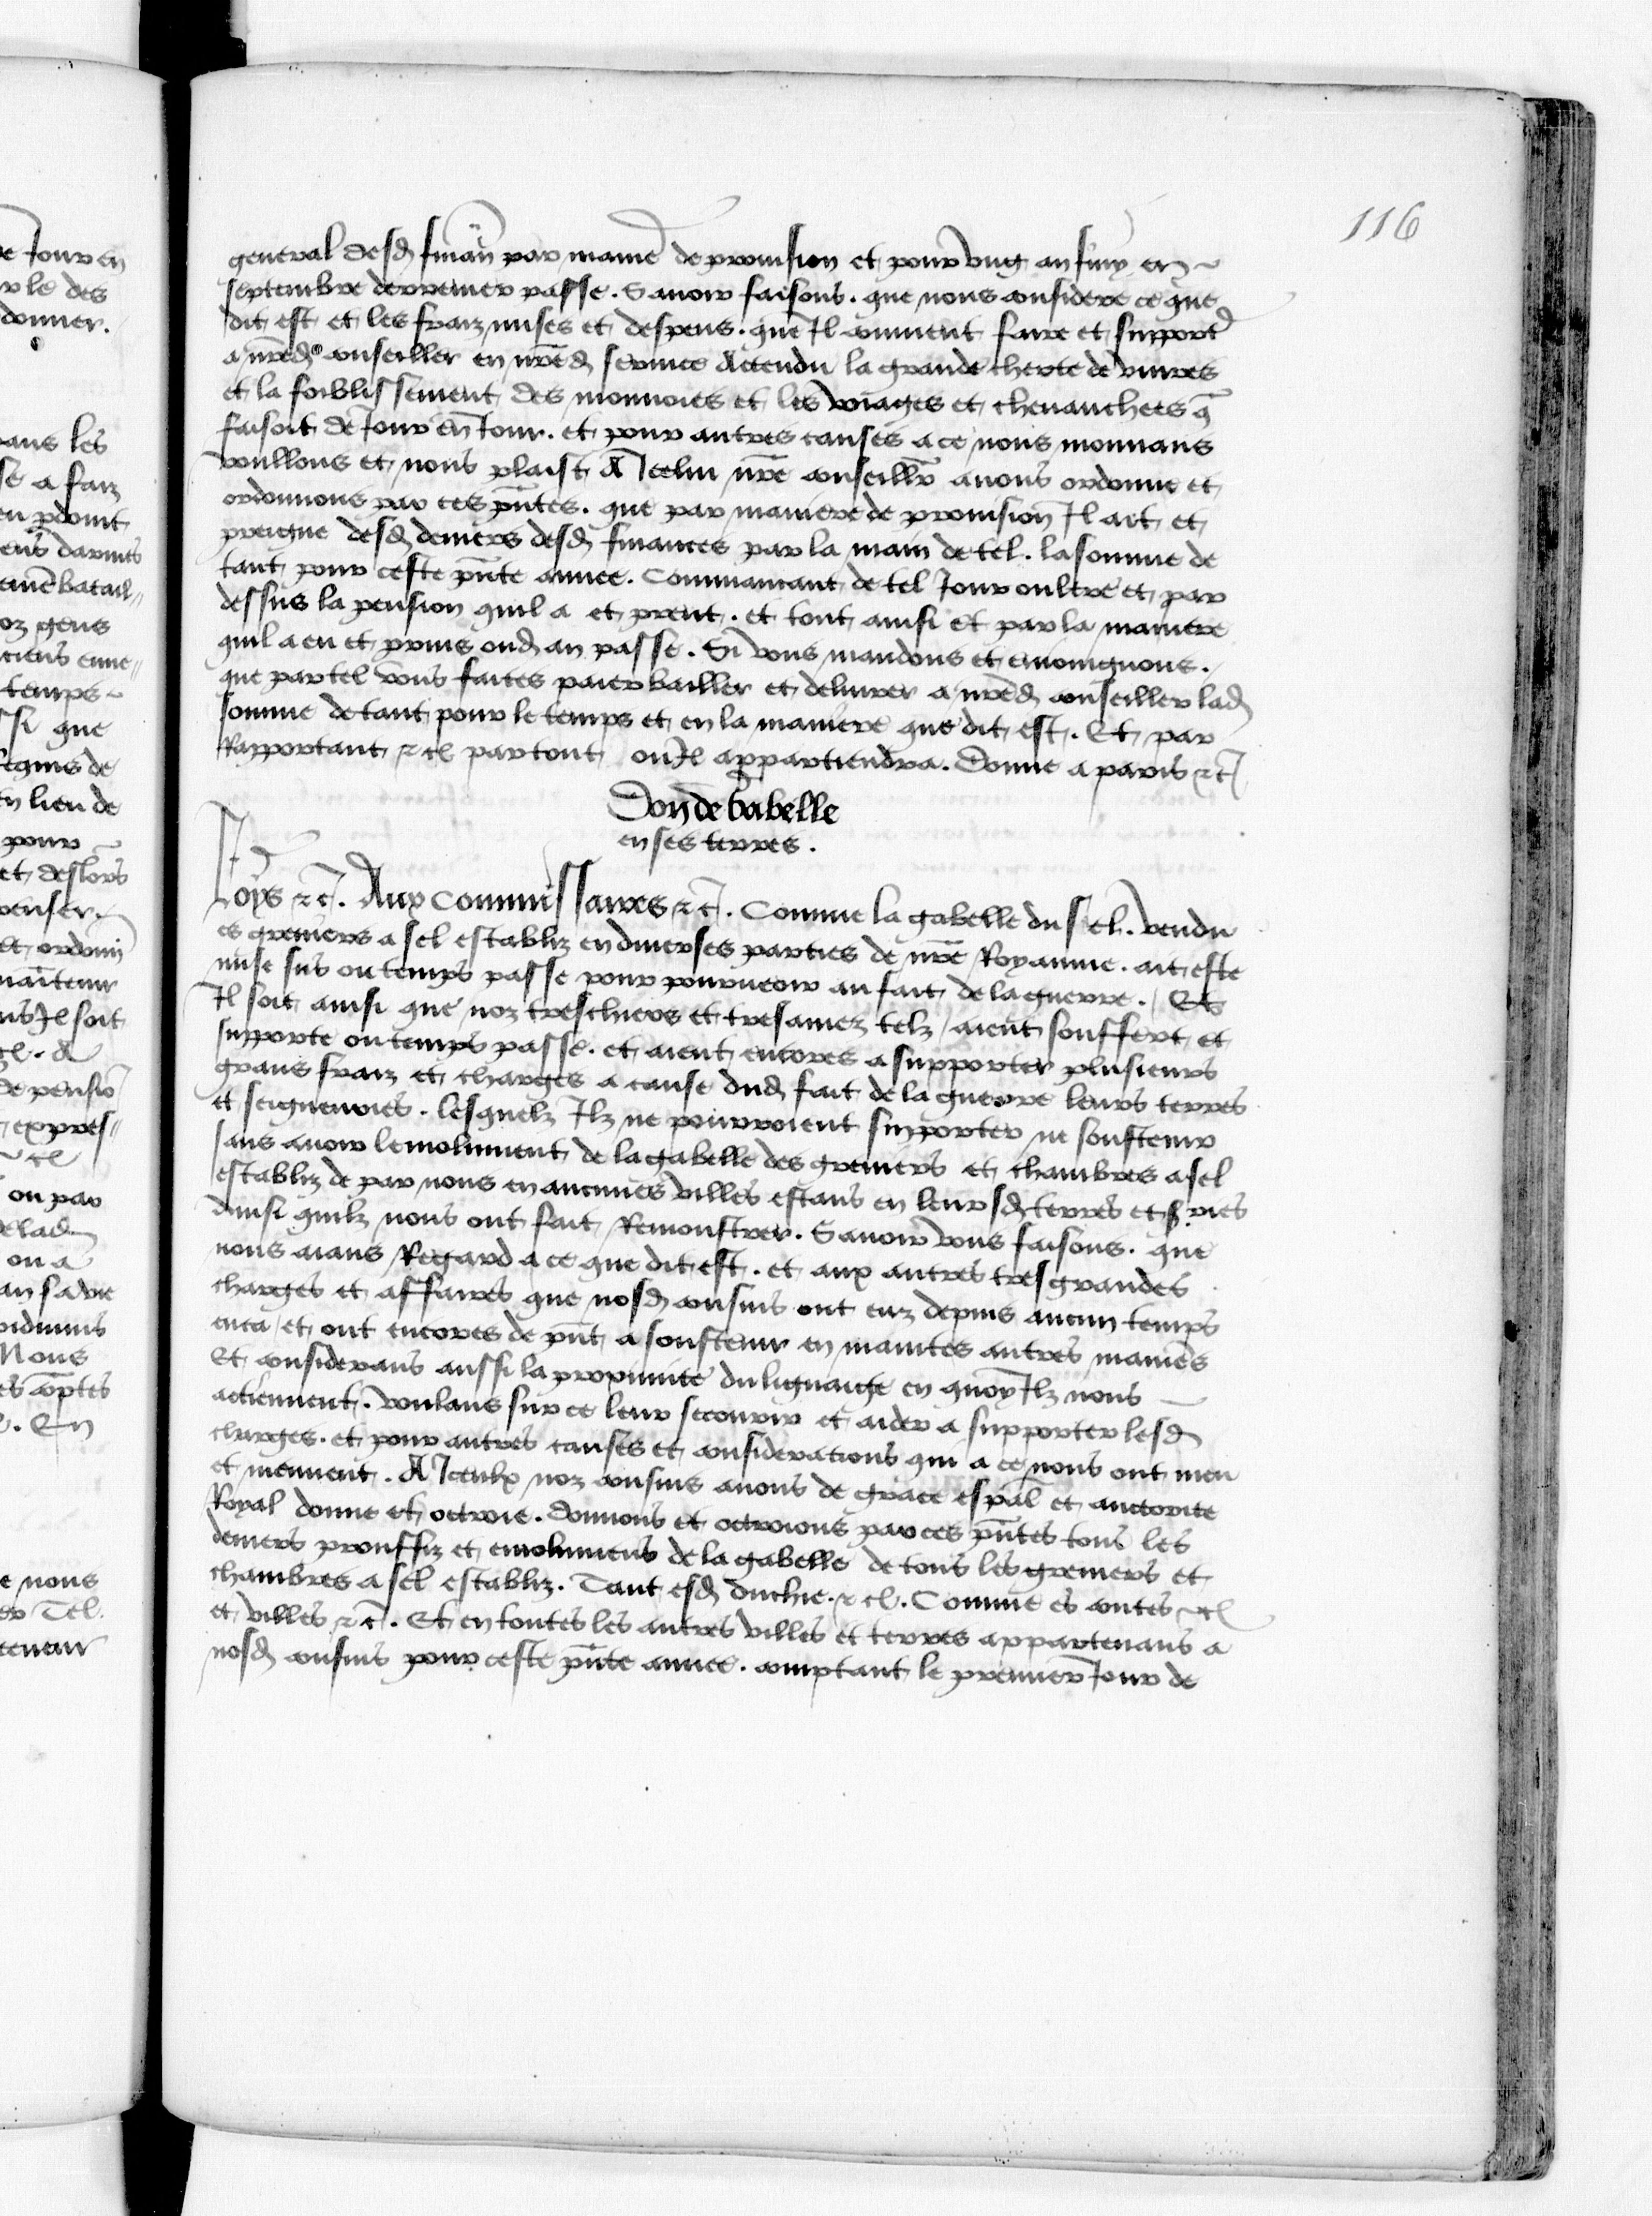 116
general desd finan par manie de provision et pour ung an finy en
septembre derrenier passe. Savoir faisons. que nous considere ce que
dit est et les fraiz mises et despens. que Il convient faire et support
a nred conseiller en nred service Actendu la grande cherte de vivres
et la foiblissement des monnoies et les voiages et chevauchees q
faisoit de Jour en Jour. et pour autres causes a ce nous mouvans
voullons et nous plaist A Icelui nre conseillr avons ordonne et
ordonnons par ces pntes. que par maniere de provision Il ait et
preigne desd deniers desd finances par la main de tel. la somme de
tant pour ceste pnte annee. Commancant de tel Jour oultre et par
dessus la pension quil a et prent. et tout ainsi et par la maniere
quil a eu et prins oud an passe. Si vous mandons et enjoignons.
que par tel vous faites paier bailler et delivrer a nred conseiller lad
somme de tant pour le temps et en la maniere que dit est. Et par
Rapportant &c par tout ou Il appartiendra. Donne a paris &c
Don de Gabelle
en ses terres.
Loys &c. Aux commissaires &c. Comme la gabelle du sel. vendu
es greniers a sel establiz en diverses parties de nre Royaume. ait este
mise sus ou temps passe pour pourveoir au fait de la guerre. Et
Il soit ainsi que noz treschiers et tresamez telz aient souffert et
supporte ou temps passe. et aient encores a supporter plusieurs
grans fraiz et charges a cause dud fait de la guerre leurs terres
et seigneuries. lesquelz Ilz ne pourroient supporter ne soustenir
sans avoir lemolument de la gabelle des greniers et chambres a sel
establiz de par nous en aucunes villes estans en leursd terres et s.ries
Ainsi quilz nous ont fait Remonstrer. Savoir vous faisons. que
nous aians Regard a ce que dit est. et aux autres tres grandes
charges et affaires que nosd cousins ont euz depuis aucun temps
enca et ont encores de pnt a soustenir en maintes autres manies
Et considerans aussi la proximite du lignaige en quoy Ilz nous
actiennent. voulans sur ce leur secourir et aider a supporter lesd
charges. et pour autres causes et considerations qui a ce nous ont meu
et meuvent. A Iceulx noz cousins avons de grace espal et auctorite
Royal donne et octroie. donnons et octroions par ces pntes tous les
deniers prouffiz et emolumens de la gabelle de tous les greniers et
chambres a sel establiz. Tant esd duchie. &c. Comme es contes &c
et villes &c. Et en toutes les autres villes et terres appartenans a
nosd cousins pour ceste pnte annee. comptant le premier Jour de